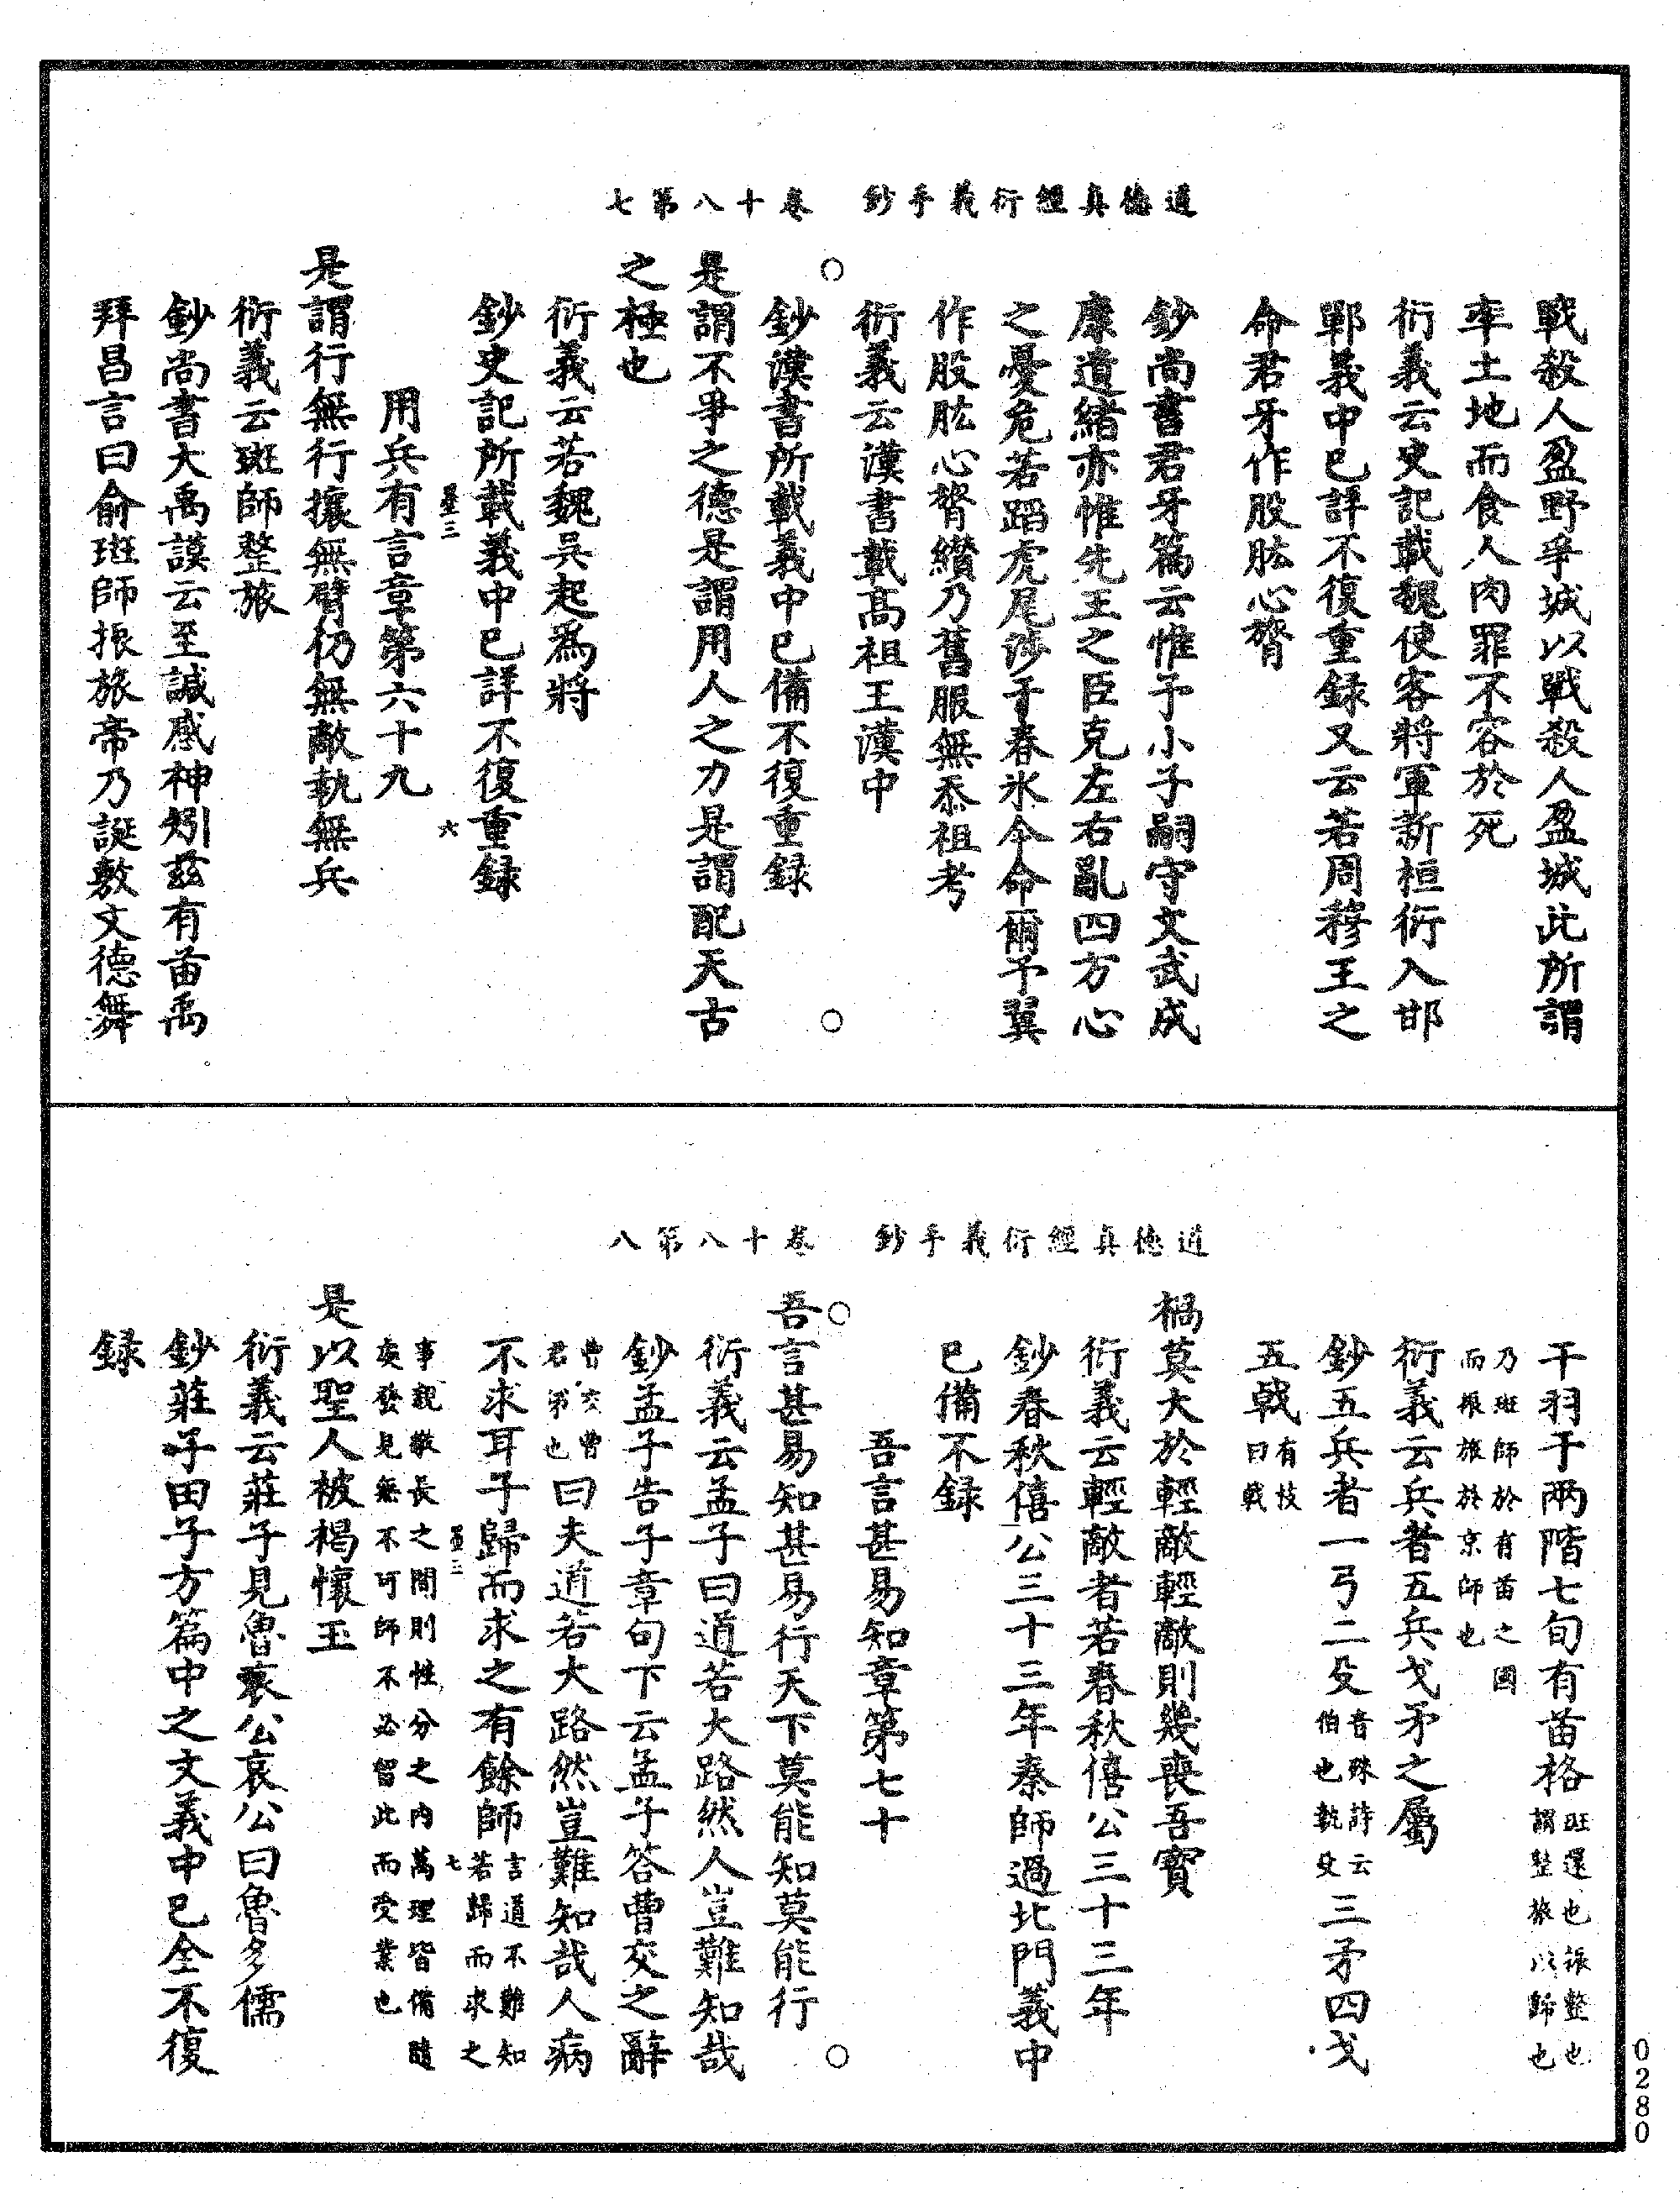 道德真經衍義手鈔　卷十八第七
戰殺人盈野爭城以戰殺人盈城此所謂
率土地而食人肉罪不容於死
衍義云史記載魏使客將軍新桓衍入邯
鄲義中已評不復重録又云若周穆王之
命君牙作股肱心膂
鈔尚書君牙篇云惟予小子嗣守文武成
康遺緒亦惟先王之臣克左右亂四方心
之憂危若蹈虎尾涉于春氷今命爾予翼
作股肱心膂纘乃舊服無忝祖考
衍義云漢書載高祖王漢中
鈔漢書所載義中已備不復重録
是謂不爭之德是謂用人之力是謂配天古
之極也
衍義云若魏吳起爲將
鈔史記所載義中已詳不復重録
墨三　六
用兵有言章第六十九
是謂行無行攘無臂仍無敵執無兵
衍義云班師整旅
鈔尚書大禹謨云至諴感神矧兹有苗禹
拜昌言曰俞班師振旅帝乃誕敷文德舞
道德真經衍義手鈔　卷十八第八
干羽于兩階七旬有苗格班還也振整也
謂整旅以歸也
乃班師於有苗之國
而振旅於京師也
衍義云兵者五兵戈矛之屬
鈔五兵者一弓二殳音殊詩云
伯也執殳三矛四戈
五戟有枝
曰戟
禍莫大於輕敵輕敵則幾喪吾寶
衍義云輕敵者若春秋僖公三十三年
鈔春秋僖公三十三年秦師過北門義中
已備不録
吾言甚易知章第七十
吾言甚易知甚易行天下莫能知莫能行
衍義云孟子曰道若大路然人豈難知哉
鈔孟子告子章句下云孟子答曹交之辭
曹交曹
君弟也曰夫道若大路然豈難知哉人病
不求耳子歸而求之有餘師言道不難知
若歸而求之
墨三　七
事親敬長之間則性分之内萬理皆備隨
處發見無不可師不必留此而受業也
是以聖人被褐懷玉
衍義云莊子見魯哀公哀公曰魯多儒
鈔莊子田子方篇中之文義中已全不復
録
0280